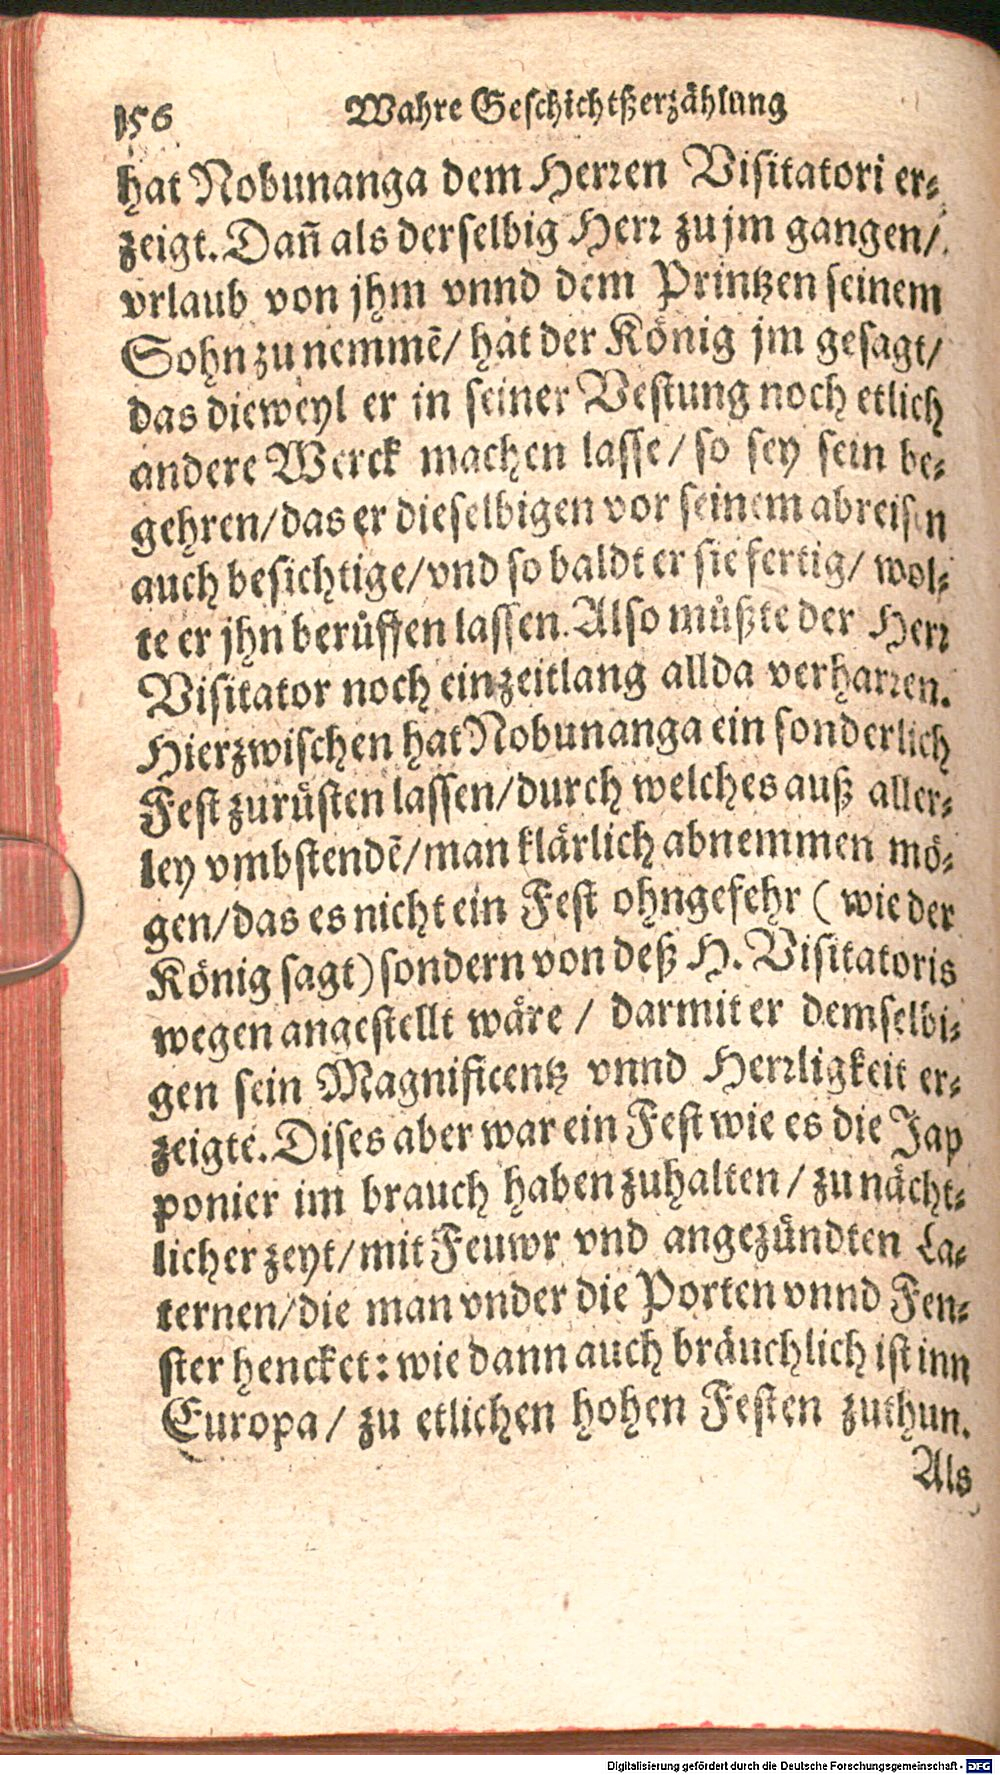 156 Wahre Geschichtßerzählung
hat Nobunanga dem Herren Visitatori er-
zeigt. Dañ als derselbig Herr zu jm gangen/
vrlaub von jhm vnnd dem Printzen seinem
Sohn zu nemmẽ/ hat der König jm gesagt/
das dieweyl er in seiner Vestung noch etlich
andere Werck machen lasse/ so sey sein be-
gehren/ das er dieselbigen vor seinem abreisen
auch besichtige/ vnd so baldt er sie fertig/ wol-
te er jhn berůffen lassen. Also můßte der Herr
Visitator noch ein zeitlang allda verharren.
Hierzwischen hat Nobunanga ein sonderlich
Fest zurüsten lassen/ durch welches auß aller-
ley vmbstendẽ/ man klärlich abnemmen mö-
gen/ das es nicht ein Fest ohngefehr ( wie der
König sagt) sondern von deß H. Visitatoris
wegen angestellt wäre / darmit er demselbi-
gen sein Magnificentz vnnd Herrligkeit er-
zeigte. Dises aber war ein Fest wie es die Jap
ponier im brauch haben zuhalten / zu nächt-
licher zeyt/ mit Feuwr vnd angezündten La-
ternen/ die man vnder die Porten vnnd Fen-
ster hencket: wie dann auch bräuchlich ist inn
Europa/ zu etlichen hohen Festen zuthun.
Als
Digitalisierung gefördert durch die Deutsche Forschungsgemeinschaft - DFG